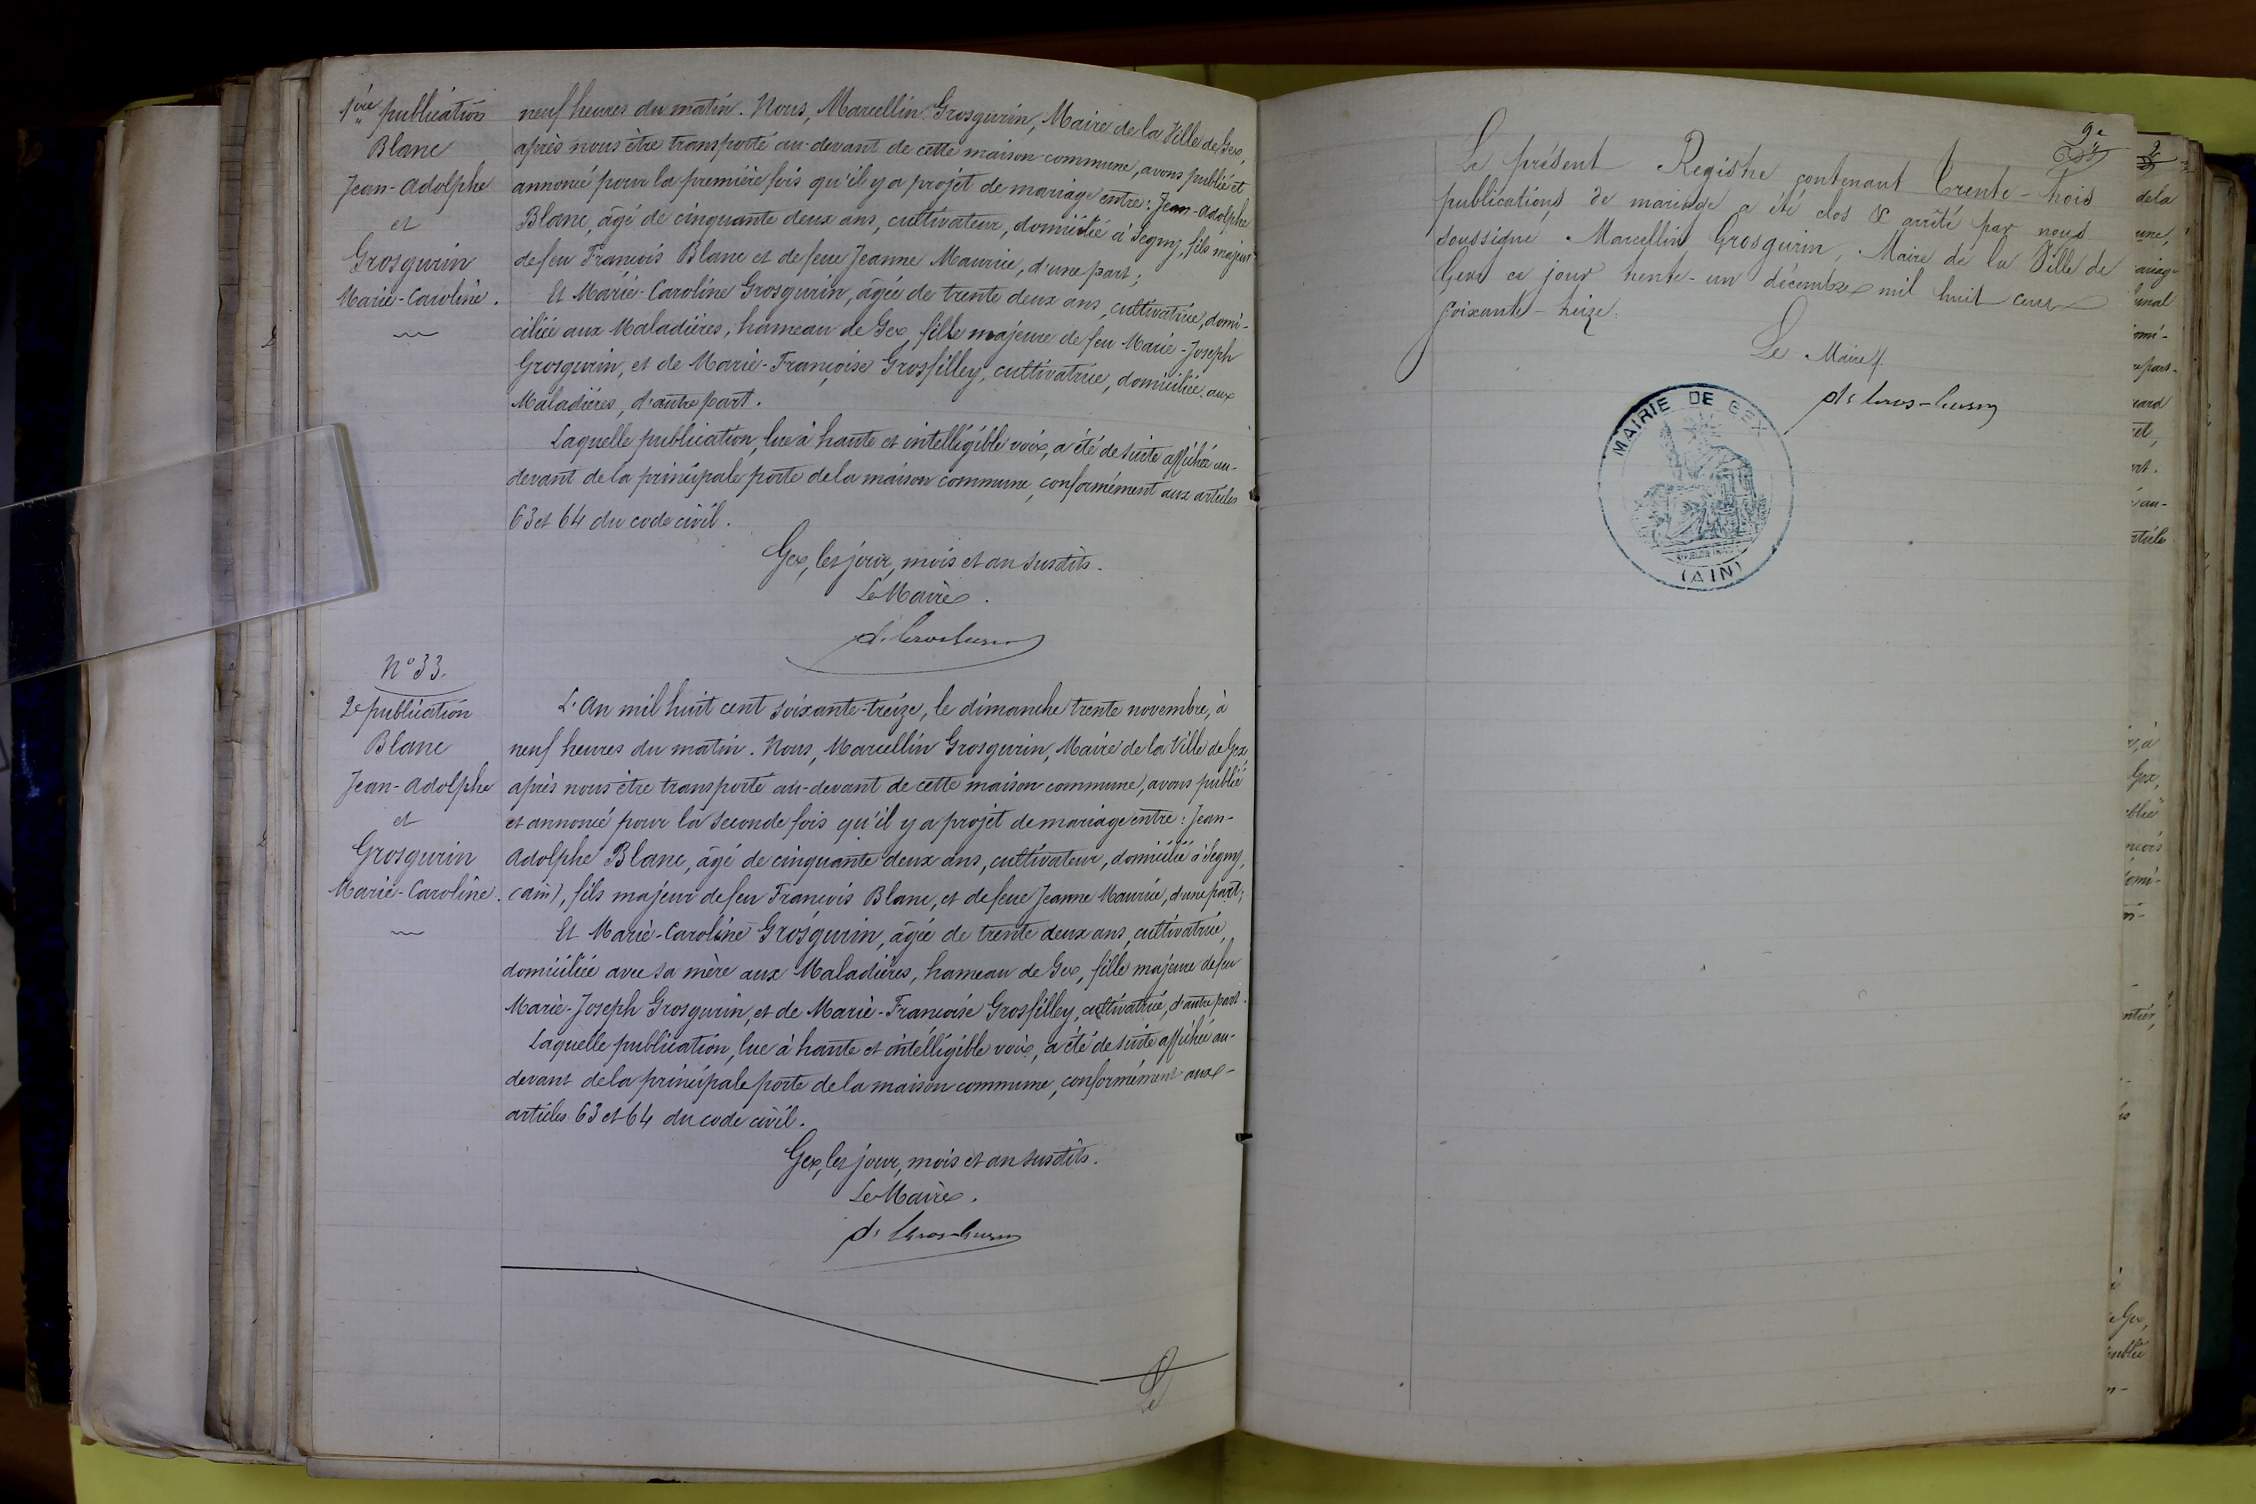 1ère publication
Blanc
Jean-Adolphe
et
Grosgurin
Marie-Caroline.
neuf heures du matin. Nous, Marcellin Grosgurin, Maire de la Ville de Gex,
après nous être transporté au-devant de cette maison commune, avons publié et
annoncé pour la première fois qu'il y a projet de mariage entre: Jean-Adolphe
Blanc, âgé de cinquante deux ans, cultivateur, domicilié à Segny, fils majeur
de feu François Blanc et de feue Jeanne Maurice, d'une part;
Et Marie-Caroline Grosgurin, âgée de trente deux ans, cultivatrice, domi-
ciliée aux Maladières, hameau de Gex, fille majeure de feu Marie-Joseph
Grosgurin, et de Marie-Françoise Grosfilley, cultivatrice, domiciliée aux
Maladières, d'autre part.
Laquelle publication, lue à haute et intelligible voix, a été de suite affichée au-
devant de la principale porte de la maison commune, conformément aux articles
63 et 64 du code civil.
Gex, les jour, mois et an susdits.
Le Maire.
N° 33.
2e publication
Blanc
Jean-Adolphe
et
Grosgurin
Marie-Caroline.
L'An mil huit cent soixante-treize, le dimanche trente novembre, à
neuf heures du matin. Nous, Marcellin Grosgurin, Maire de la Ville de Gex,
après nous être transporté au-devant de cette maison commune, avons publié
et annoncé pour la seconde fois qu'il y a projet de mariage entre: Jean-
Adolphe Blanc, âgé de cinquante deux ans, cultivateur, domicilié à Segny,
(ain), fils majeur de feu François Blanc, et de feue Jeanne Maurice, d'une part;
Et Marie-Caroline Grosgurin, âgée de trente deux ans, cultivatrice,
domiciliée avec sa mère aux Maladières, hameau de Gex, fille majeure de feu
Marie-Joseph Grosgurin, et de Marie-Françoise Grosfilley, cultivatrice, d'autre part.
Laquelle publication, lue à haute et intelligible voix, a été de suite affichée au-
devant de la principale porte de la maison commune, conformément aux
articles 63 et 64 du code civil.
Gex, les jour, mois et an susdits.
Le Maire.
Le
9e
Le présent Registre contenant trente-trois
publications de mariage a été clos & arrêté par nous
soussigné Marcellin Grosgurin, Maire de la Ville de
Gex ce jour trente-un décembre mil huit cent
soixante-treize.
Le Maire
MAIRIE DE GEX
(AIN)